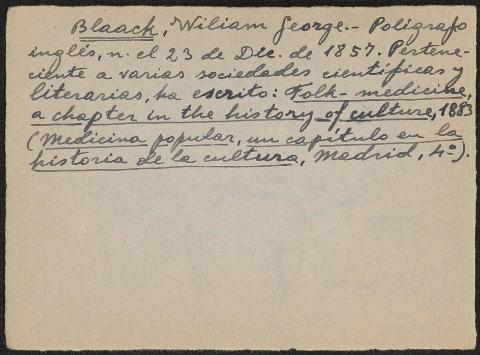 Blaack, Wiliam George.- Polígrafo
inglés, n. el 23 de Dic. de 1857. Pertene-
ciente a varias sociedades científicas y
literarias, ha escrito: Folk-medicine,
a chapter in the history of culture, 1883
(Medicina popular, un capítulo en la
historia de la cultura, Madrid, 4º).